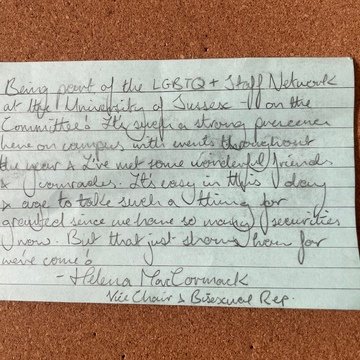 Being part of the LGBTQ+ Staff Network
at the University of Sussex - on the
Committee! It's such a strong prescence
here on campus with events throughout
the year & I've met some wonderful friends
& comrades. It's easy in this day
& age to take such a thing for
granted since we have so many securities
now. But that just shows how far
we've come!
- Helena MacCormack
Vice Chair & Bisexual Rep.